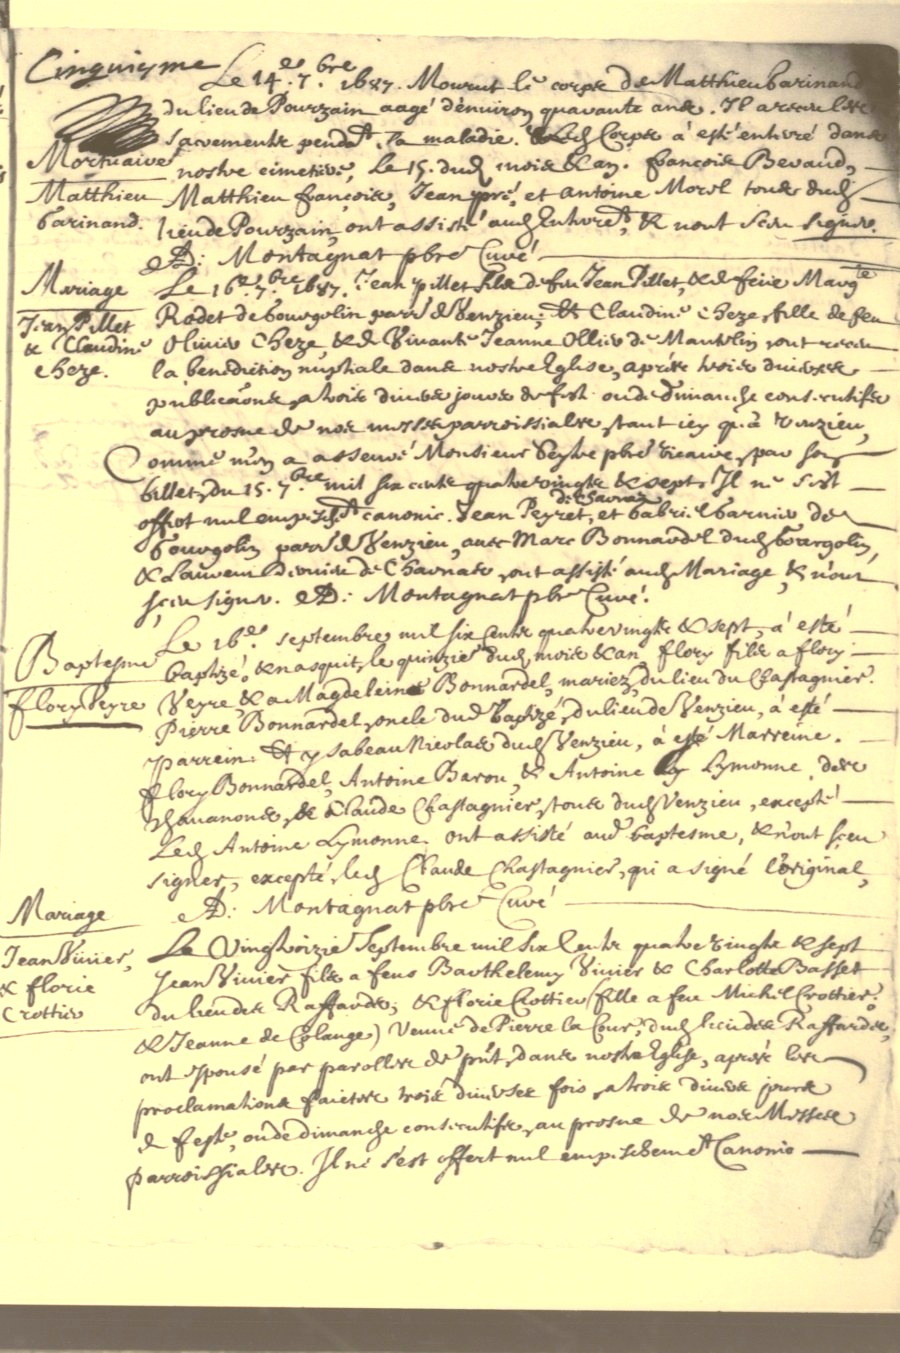 Cinquiesme
Le 14.e 7.bre 1687. Mourut le corps de Matthieu Garinand
du lieu de Pourzain aagé d'environ quarante ans. Il a receu les
sacrements pendt. sa maladie. Led. Corps à esté enterré dans
Mortuaire
nostre cimetiere, le 15. dud. mois & an. françois Beraud,
Matthieu
Matthieu françois, Jean pré, et Antoine Morel touts dud.
Garinand.
lieu de Pourzain, ont assisté aud. Enterrt. & n'ont sceu signer.
Montagnat pbre Curé
Mariage
Le 16.e 7.bre 1687. Jean Pillet fils de feu Jean Pillet, & de feüe Margte
Jean Pillet
Rodet de bourgolin parr. d Venzieu; Et Claudine Cheze, fille de feu
& Claudine
Olivier Cheze, & d Vivante Jeanne Ollier de Mantelin, ont receu
Cheze.
la benediction nuptiale dans nostre Eglise, aprés trois diverses
publicaõns, a trois divers jours de fest. ou de dimanche consecutifs
au prosne de nos messes parroissiales, tant icy qu'à Venzieu,
Comme m'en a asseuré Monsieur Veyre pbre vicaire, par son
billet, du 15. 7.bre mil six cents quatre vingts & sept. Il ne s'est
offert nul empescht. canonic. Jean Peyret, et Gabriel Garnier de
bourgolin parr. d Venzieu, avec Marc Bonnardel dud. bourgolin,
& Laurent de Charnas, ont assisté aud. Mariage, & n'ont
sceu signer. Montagnat pbre Curé.
Le 16.e septembre mil six cents quatre vingts & sept, à esté
Baptesme
baptizé, & nasquit, le quinzie dud. mois & an flory fils a flory
flory Veyre
Veyre & a Magdeleine Bonnardel, mariez, du lieu du Chastagnier.
Pierre Bonnardel, oncle dud. Baptizé, du lieu de Venzieu, à esté
parrein: Et ysabeau Nicolas dud. Venzieu, à esté Marreine.
flory Bonnardel, Antoine Baron, & Antoine Lymonne, des
Chavanons, & Claude Chastagnier, touts dud. Venzieu, excepté
Led. Antoine Lymonne. ont assisté aud. baptesme, & n'ont sceu
signer, excepté led. Claude Chastagnier, qui a signé l'original,
Montagnat pbre Curé
Mariage
Le Vingtroizie Septembre mil six Cents quatre vingts & sept
Jean Vivier,
Jean Vivier fils a feus Barthelemy Vivier & Charlotte Basset
& florie
du lieu des Raffards; & florie Crottier (fille a feu Michel Crottier
Crottier
& Jeanne de Colange) Veuve de Pierre la Cour, dud. lieu des Raffards,
ont espousé par parolles de pñt, dans nostre Eglise, aprés les
proclamations faictes trois diverses fois, a trois divers jours
d feste, ou de dimanche consecutifs, au prosne de nos Messes
parroissiales. Il ne s'est offert nul empeschemt. Canonic